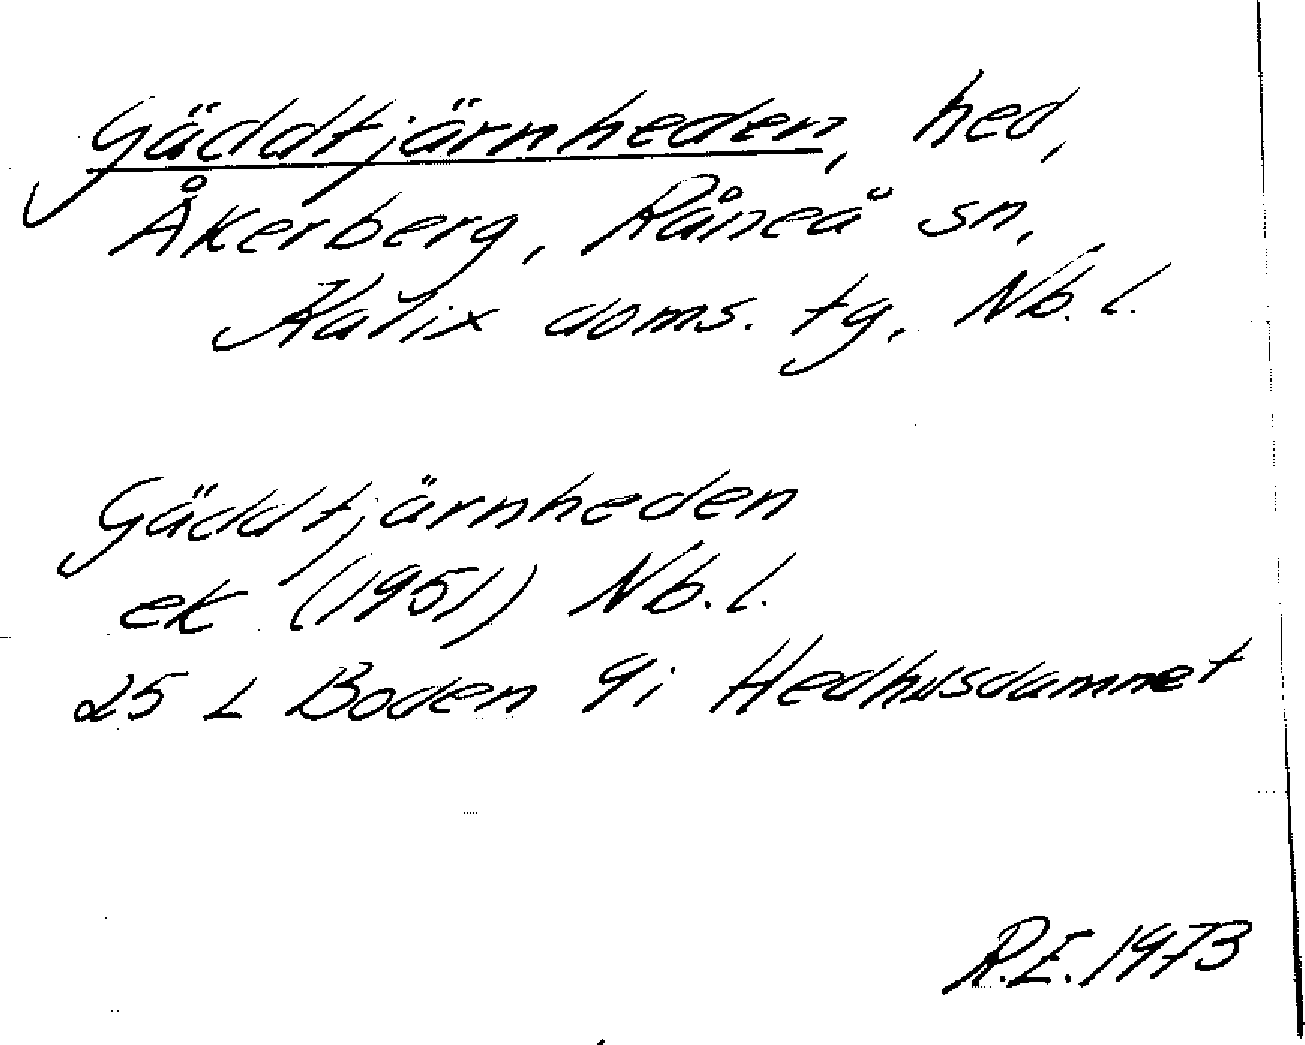 Gäddtjärnheden, hed,
Åkerberg, Råneå sn,
Kalix doms. tg, Nb. l.
Gäddtjärnheden
ek (1951) Nb. l.
25 L Boden 9i Hedhusdammet
R.E. 1973